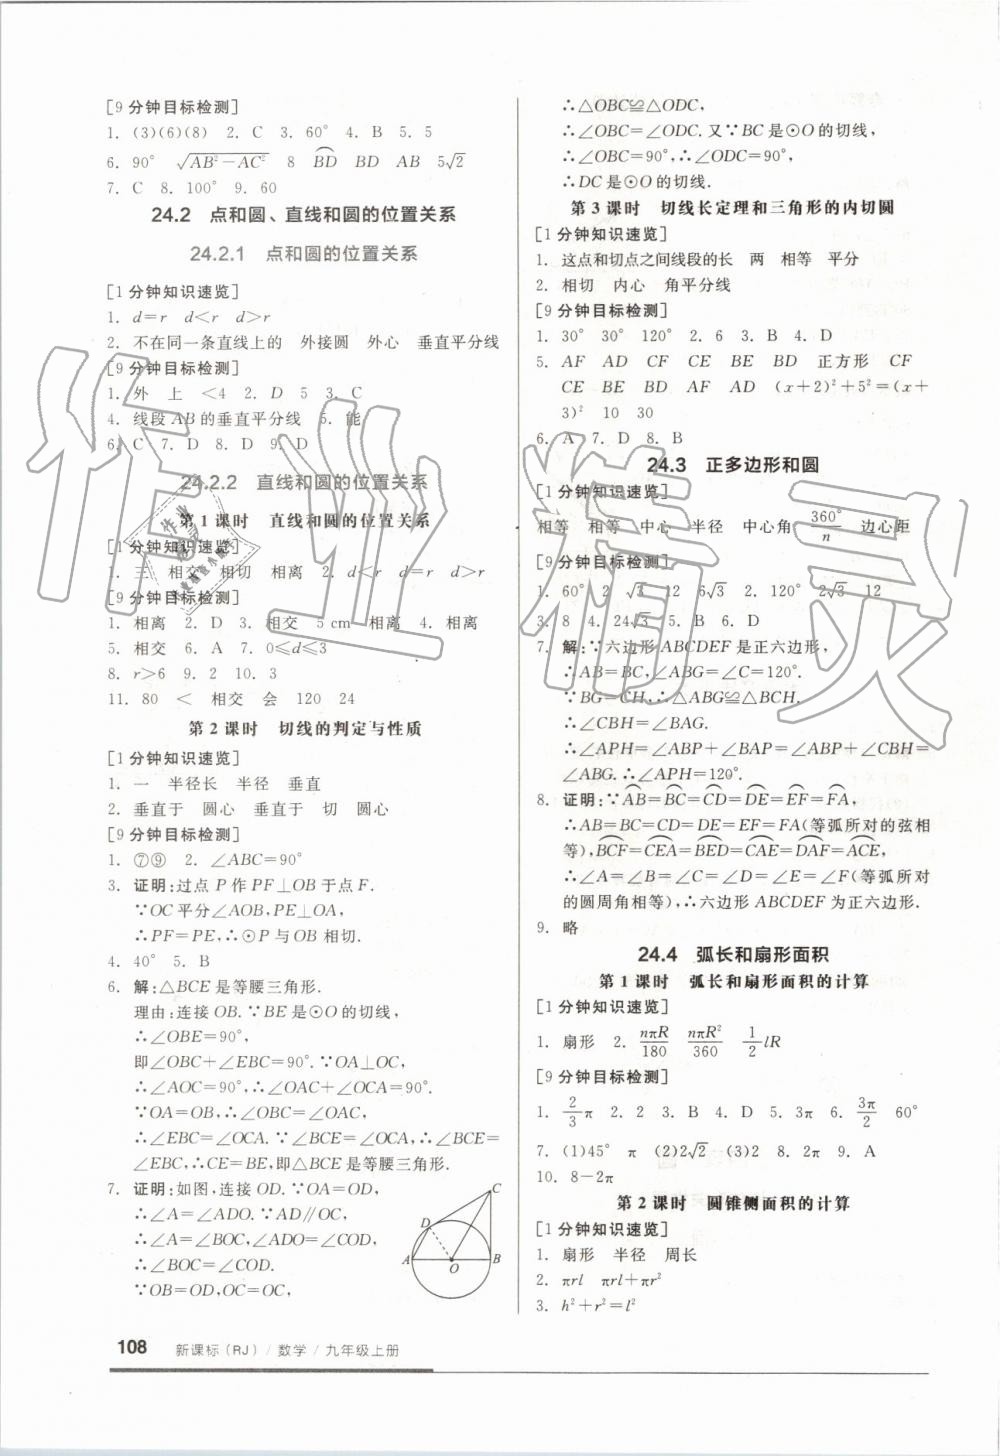 [9分钟目标检测]
1. (3)(6)(8)  2. C  3. 60°  4. B  5. 5
6. 90°  √(AB²−AC²)  8  B͡D  BD  AB  5√2
7. C  8. 100°  9. 60
24.2  点和圆、直线和圆的位置关系
24.2.1  点和圆的位置关系
[1分钟知识速览]
1. d=r  d<r  d>r
2. 不在同一条直线上的  外接圆  外心  垂直平分线
[9分钟目标检测]
1. 外  上  <4  2. D  5  3. C
4. 线段AB的垂直平分线  5. 能
6. C  7. D  8. D  9. D
24.2.2  直线和圆的位置关系
第1课时  直线和圆的位置关系
[1分钟知识速览]
1. 三  相交  相切  相离  2. d<r  d=r  d>r
[9分钟目标检测]
1. 相离  2. D  3. 相交  5 cm  相离  4. 相离
5. 相交  6. A  7. 0≤d≤3
8. r>6  9. 2  10. 3
11. 80  <  相交  会  120  24
第2课时  切线的判定与性质
[1分钟知识速览]
1. 一  半径长  半径  垂直
2. 垂直于  圆心  垂直于  切  圆心
[9分钟目标检测]
1. ⑦⑨  2. ∠ABC=90°
3. 证明:过点P作PF⊥OB于点F.
∵OC平分∠AOB,PE⊥OA,
∴PF=PE,∴⊙P与OB相切.
4. 40°  5. B
6. 解:△BCE是等腰三角形.
理由:连接OB.∵BE是⊙O的切线,
∴∠OBE=90°,
即∠OBC+∠EBC=90°.∵OA⊥OC,
∴∠AOC=90°,∴∠OAC+∠OCA=90°.
∵OA=OB,∴∠OBC=∠OAC,
∴∠EBC=∠OCA.∵∠BCE=∠OCA,∴∠BCE=
∠EBC,∴CE=BE,即△BCE是等腰三角形.
7. 证明:如图,连接OD.∵OA=OD,
∴∠A=∠ADO.∵AD∥OC,
∴∠A=∠BOC,∠ADO=∠COD,
∴∠BOC=∠COD.
∵OB=OD,OC=OC,
C
D
A
O
B
∴△OBC≌△ODC,
∴∠OBC=∠ODC.又∵BC是⊙O的切线,
∴∠OBC=90°,∴∠ODC=90°,
∴DC是⊙O的切线.
第3课时  切线长定理和三角形的内切圆
[1分钟知识速览]
1. 这点和切点之间线段的长  两  相等  平分
2. 相切  内心  角平分线
[9分钟目标检测]
1. 30°  30°  120°  2. 6  3. B  4. D
5. AF  AD  CF  CE  BE  BD  正方形  CF
CE  BE  BD  AF  AD  (x+2)²+5²=(x+
3)²  10  30
6. A  7. D  8. B
24.3  正多边形和圆
[1分钟知识速览]
相等  相等  中心  半径  中心角  360°/n  边心距
[9分钟目标检测]
1. 60°  2  √3  12  6√3  2. 120°  2√3  12
3. 8  4. 24√3  5. B  6. D
7. 解:∵六边形ABCDEF是正六边形,
∴AB=BC,∠ABG=∠C=120°.
∵BG=CH,∴△ABG≌△BCH.
∴∠CBH=∠BAG.
∴∠APH=∠ABP+∠BAP=∠ABP+∠CBH=
∠ABG.∴∠APH=120°.
8. 证明:∵A͡B=B͡C=C͡D=D͡E=E͡F=F͡A,
∴AB=BC=CD=DE=EF=FA(等弧所对的弦相
等),B͡CF=C͡EA=B͡ED=C͡AE=D͡AF=A͡CE,
∴∠A=∠B=∠C=∠D=∠E=∠F(等弧所对
的圆周角相等),∴六边形ABCDEF为正六边形.
9. 略
24.4  弧长和扇形面积
第1课时  弧长和扇形面积的计算
[1分钟知识速览]
1. 扇形  2. nπR/180  nπR²/360  1/2 lR
[9分钟目标检测]
1. 2/3 π  2. 2  3. B  4. D  5. 3π  6. 3π/2  60°
7. (1)45°  π  (2)2√2  (3)2  8. 2π  9. A
10. 8−2π
第2课时  圆锥侧面积的计算
[1分钟知识速览]
1. 扇形  半径  周长
2. πrl  πrl+πr²
3. h²+r²=l²
108  新课标(RJ)/数学/九年级上册
作业精灵